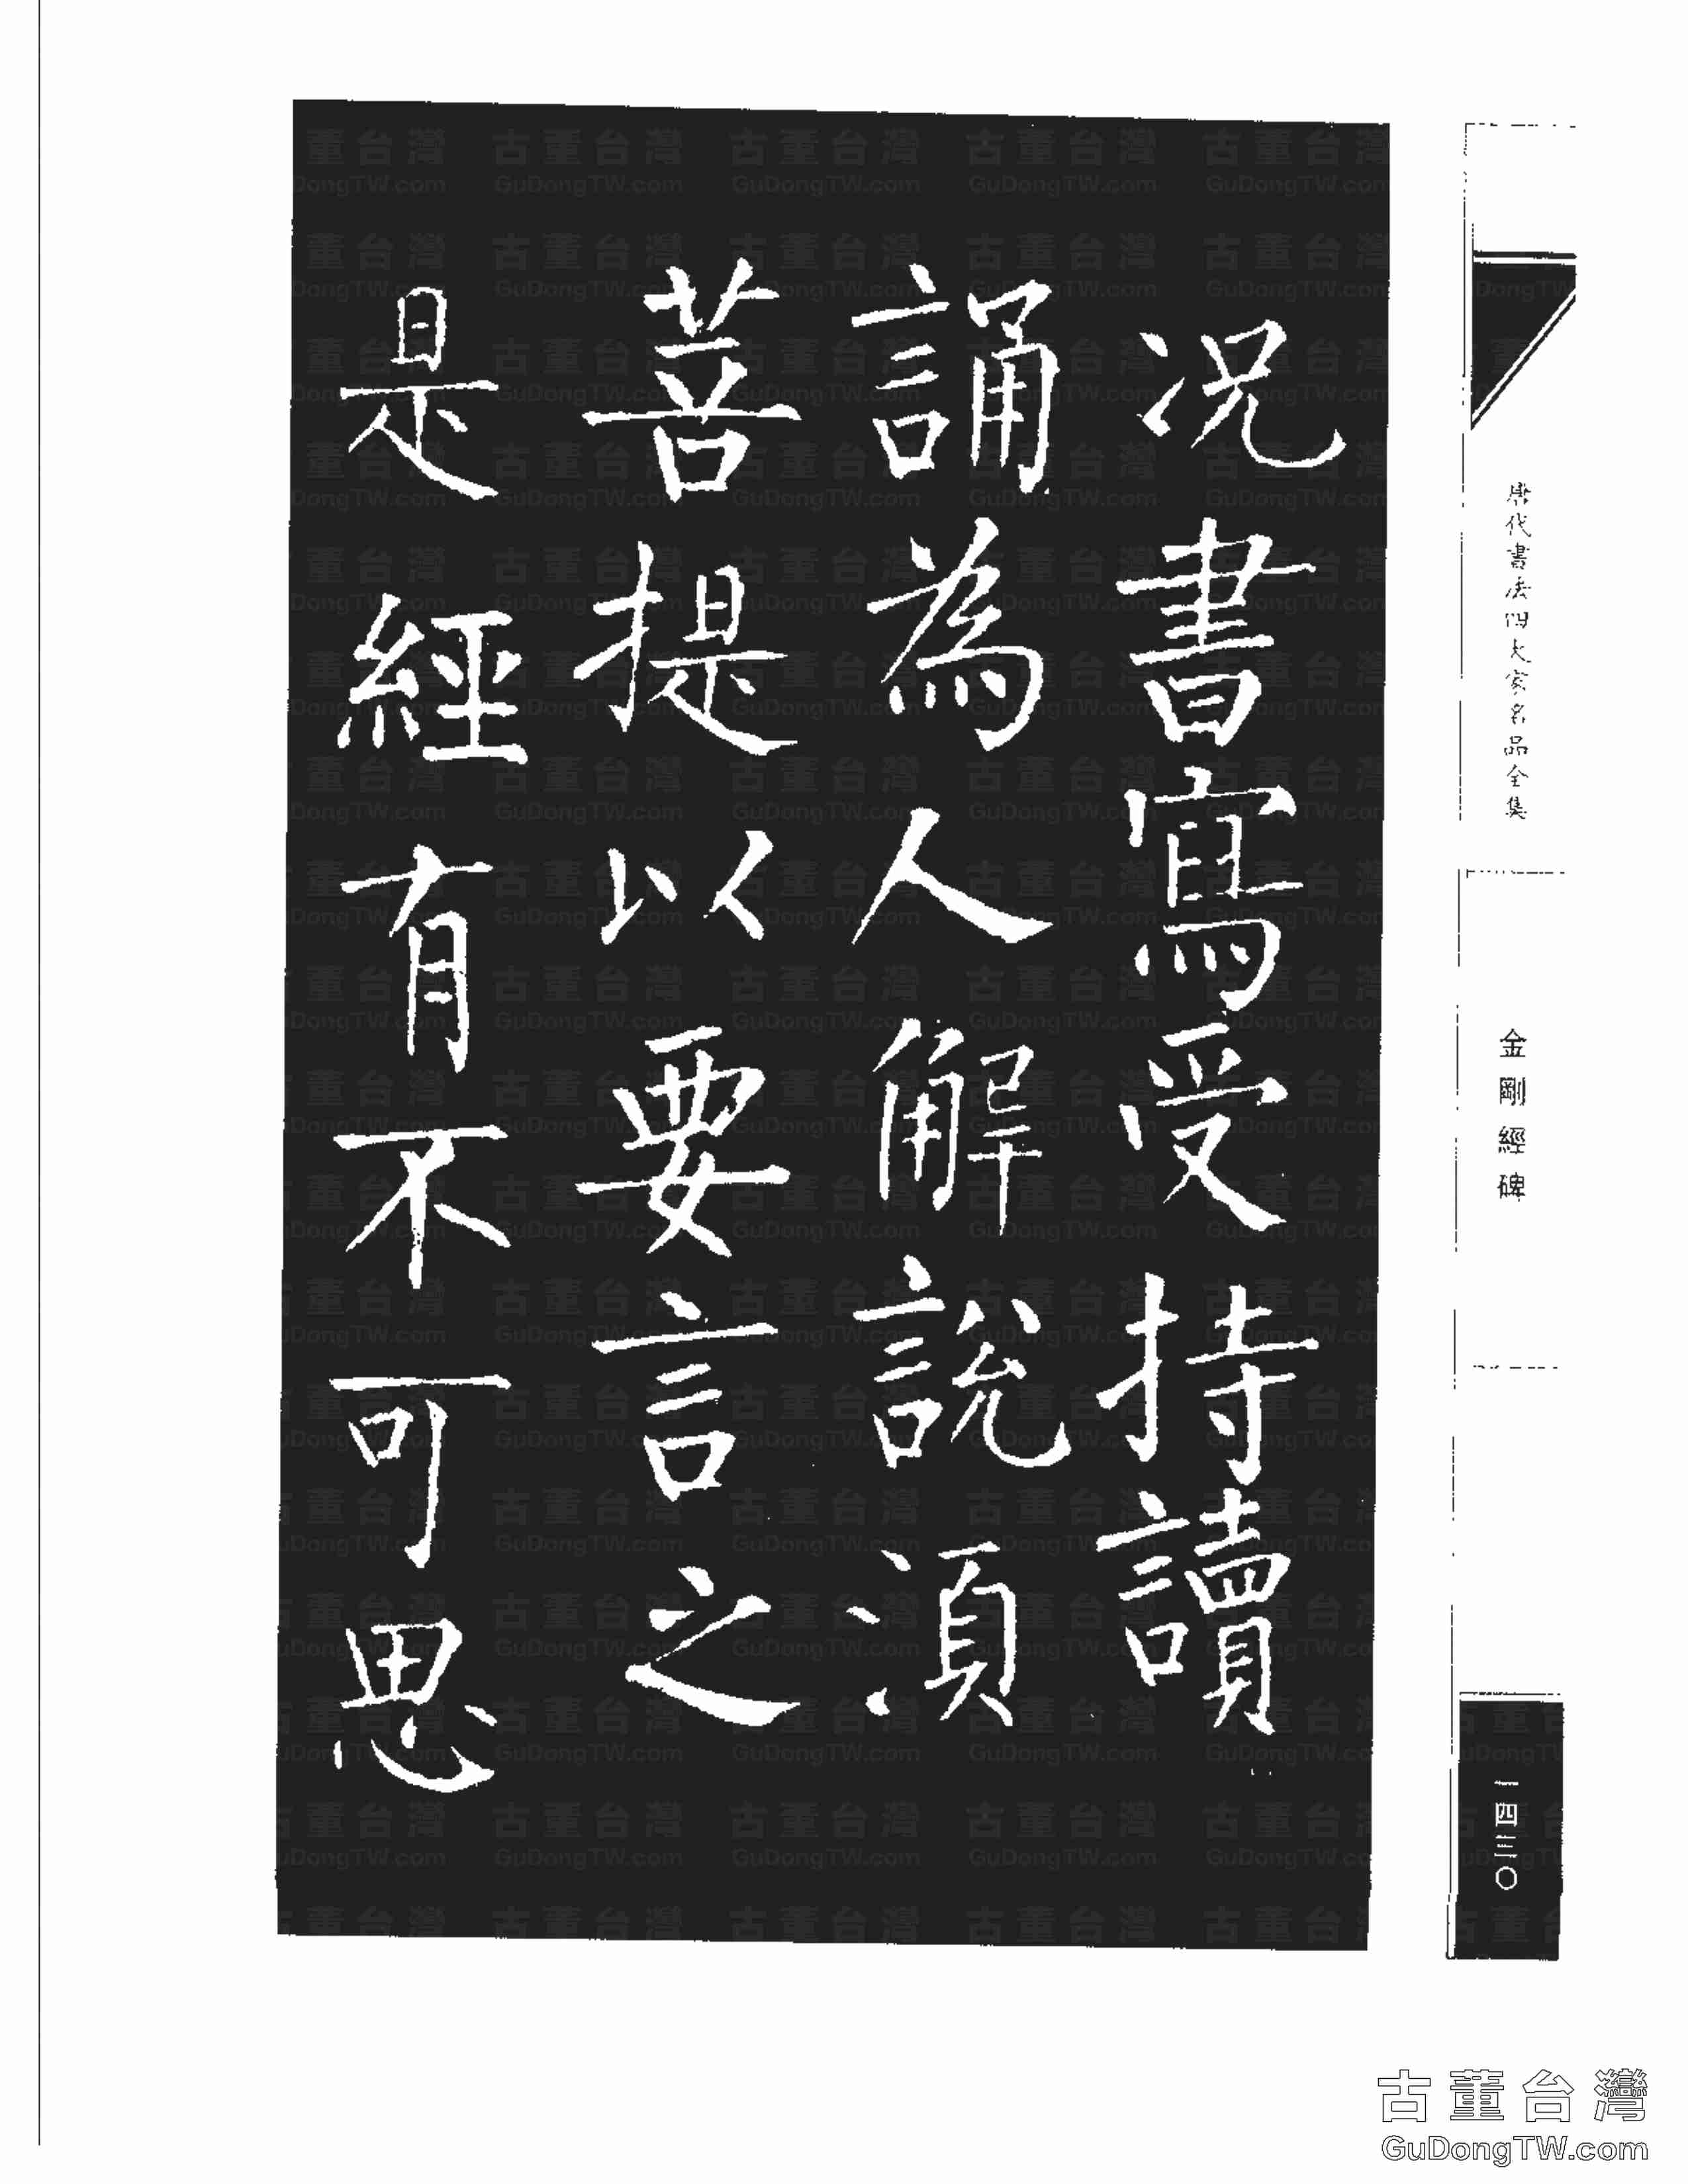 况書寫受持讀
誦為人解說湏
菩提以要言之
是經有不可思
唐代書法四大家名品全集
金剛經碑
一四三〇
古董台灣
GuDongTW.com